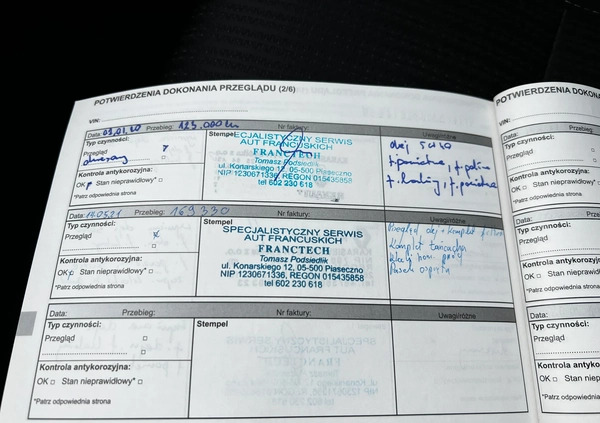 POTWIERDZENIA DOKONANIA PRZEGLĄDU (2/6)
VIN:
Data: 03.01.20 Przebieg: 125.000 km Nr faktury:
Typ czynności:
Przegląd
okresowy
Kontrola antykorozyjna:
OK Stan nieprawidłowy*
*Patrz odpowiednia strona
Stempel
SPECJALISTYCZNY SERWIS
AUT FRANCUSKICH
FRANCTECH
Tomasz Podsiedlik
ul. Konarskiego 12, 05-500 Piaseczno
NIP 1230671336, REGON 015435858
tel 602 230 618
Uwagi/różne
olej 5W40
f. powietrza, f. paliwa
f. kabiny, f. powietrza
Data: 14.05.21 Przebieg: 169330 Nr faktury:
Typ czynności:
Przegląd
Kontrola antykorozyjna:
OK Stan nieprawidłowy*
*Patrz odpowiednia strona
Stempel
SPECJALISTYCZNY SERWIS
AUT FRANCUSKICH
FRANCTECH
Tomasz Podsiedlik
ul. Konarskiego 12, 05-500 Piaseczno
NIP 1230671336, REGON 015435858
tel 602 230 618
Uwagi/różne
Przegląd olej + komplet filtrów
Komplet łańcucha
Klocki ham. przód
Pasek osprzętu
Data: Przebieg: Nr faktury: Uwagi/różne
Typ czynności:
Przegląd
Kontrola antykorozyjna:
OK Stan nieprawidłowy*
*Patrz odpowiednia strona
Stempel
POTWIERDZENIA
VIN:
Data: Przebieg
Typ czynności:
Przegląd
Kontrola antykorozyjna:
OK Stan nieprawidłowy*
*Patrz odpowiednia strona
Data:
Typ czynności:
Przegląd
Kontrola antykorozyjna:
OK Stan nieprawidłowy
*Patrz odpowiednia strona
Data:
Typ czynności:
Przegląd
Kontrola
OK Stan
*Patrz odpowiednia